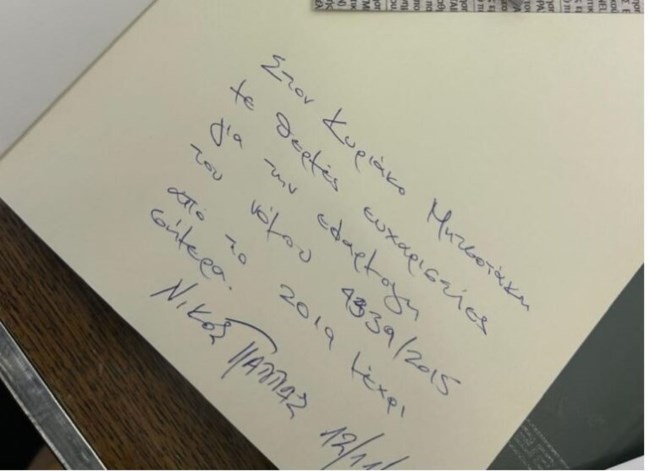 Στον Κυριάκο Μητσοτάκη
με θερμές ευχαριστίες
για την εφαρμογή
του νόμου 4339/2015
από το 2019 μέχρι
σήμερα.
Νίκος ΠΑΠΠΑΣ 12/11/